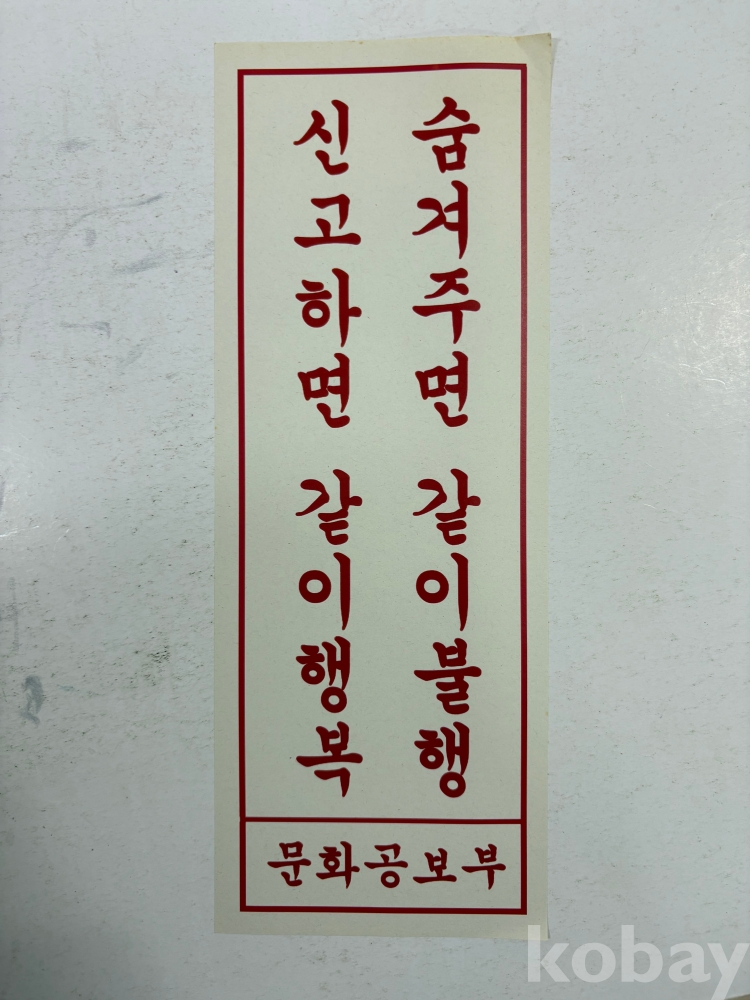 숨겨주면 같이불행
신고하면 같이행복
문화공보부
kobay